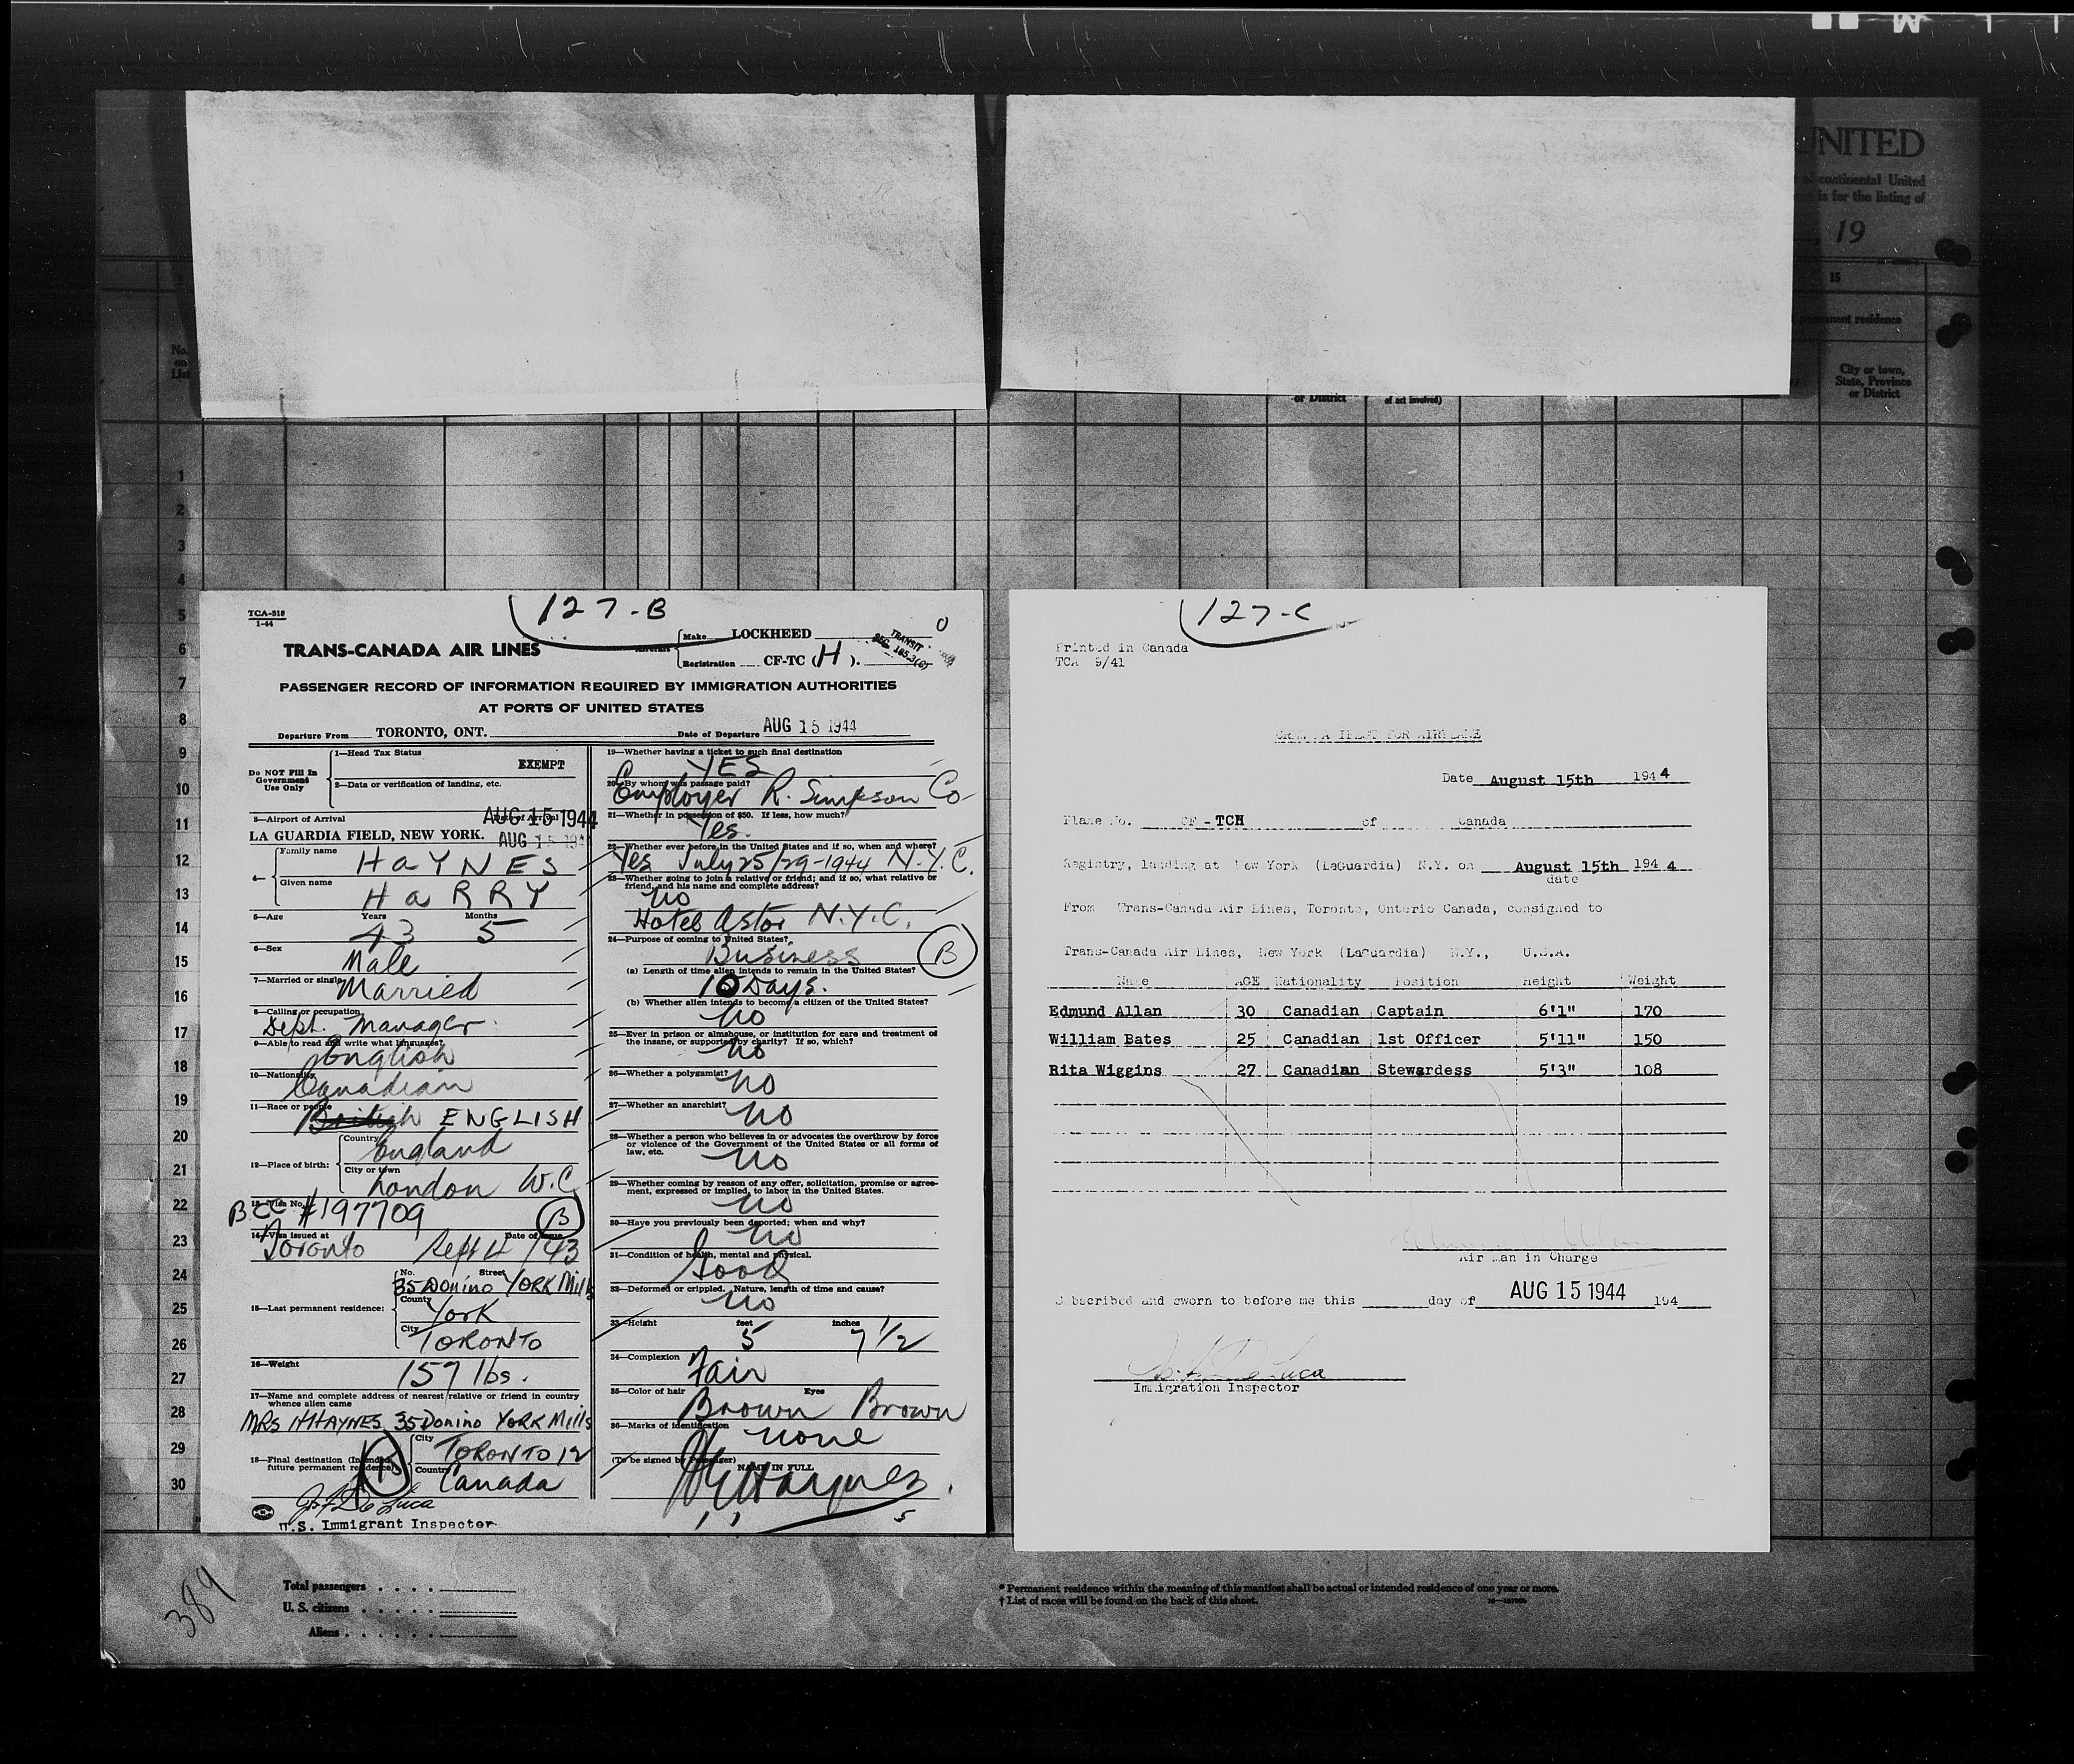 UNITED
of continental United
is for the listing of
, 19
15
permanent residence
No.
on
List
City or town,
State, Province
or District
or District
of act involved)
1
2
3
4
5
6
7
8
9
10
11
12
13
14
15
16
17
18
19
20
21
22
23
24
25
26
27
28
29
30
127-B
TCA-518
1-44
TRANS-CANADA AIR LINES
Aircraft
Make LOCKHEED
0
Registration CF-TC (H).
TRANSIT
SEC. 165.3(c)
PASSENGER RECORD OF INFORMATION REQUIRED BY IMMIGRATION AUTHORITIES
AT PORTS OF UNITED STATES
Departure From TORONTO, ONT. Date of Departure AUG 15 1944
Do NOT Fill In
Government
Use Only
1—Head Tax Status
EXEMPT
2—Data or verification of landing, etc.
3—Airport of Arrival Date of Arrival
AUG 15 1944
LA GUARDIA FIELD, NEW YORK. AUG 15 194
4—
Family name HAYNES
Given name HARRY
5—Age Years 43 Months 5
6—Sex Male
7—Married or single Married
8—Calling or occupation
Dept. Manager
9—Able to read and write what languages?
English
10—Nationality
Canadian
11—Race or people
British ENGLISH
12—Place of birth:
Country England
City or town
London W.C
13—Visa No.
BCC #197709
B
14—Visa issued at Date of Issue
Toronto Sept 4/43
15—Last permanent residence:
No. Street
35 Donino YORK Mills
County
York
City
TORONTO
16—Weight 157 lbs.
17—Name and complete address of nearest relative or friend in country
whence alien came
MRS H HAYNES 35 Donino YORK Mills
18—Final destination (Intended
future permanent residence)
B
City
TORONTO 12
Country
Canada
Jos. F. De Luca
U.S. Immigrant Inspector
19—Whether having a ticket to such final destination
YES
20—By whom was passage paid?
Employer R. Simpson Co
21—Whether in possession of $50. If less, how much?
Yes.
22—Whether ever before in the United States and if so, when and where?
Yes July 25/29-1944 N.Y.C.
23—Whether going to join a relative or friend; and if so, what relative or
friend, and his name and complete address?
No
Hotel Astor N.Y.C.
24—Purpose of coming to United States?
Business
B
(a) Length of time alien intends to remain in the United States?
10 Days.
(b) Whether alien intends to become a citizen of the United States?
No
25—Ever in prison or almshouse, or institution for care and treatment of
the insane, or supported by charity? If so, which?
No
26—Whether a polygamist? No
27—Whether an anarchist? No
28—Whether a person who believes in or advocates the overthrow by force
or violence of the Government of the United States or all forms of
law, etc.
No
29—Whether coming by reason of any offer, solicitation, promise or agree-
ment, expressed or implied, to labor in the United States.
No
30—Have you previously been deported; when and why?
No
31—Condition of health, mental and physical.
Good
32—Deformed or crippled. Nature, length of time and cause?
No
33—Height feet inches
5 7 1/2
34—Complexion Fair
35—Color of hair Eyes
Brown Brown
36—Marks of identification
None
(To be signed by Passenger)
NAME IN FULL
H Haynes.
5
127-C
Printed in Canada
TCA 9/41
CREW MANIFEST FOR AIRPLANE
Date August 15th 1944
Plane No. CF-TCH of Canada
Registry, landing at New York (LaGuardia) N.Y. on August 15th 1944
date
From Trans-Canada Air Lines, Toronto, Ontario Canada, consigned to
Trans-Canada Air Lines, New York (LaGuardia) N.Y., U.S.A.
Name AGE Nationality Position Height Weight
Edmund Allan 30 Canadian Captain 6'1" 170
William Bates 25 Canadian 1st Officer 5'11" 150
Rita Wiggins 27 Canadian Stewardess 5'3" 108
Air Man in Charge
Subscribed and sworn to before me this day of AUG 15 1944 194
Jos. F. De Luca
Immigration Inspector
389
Total passengers . . . .
U. S. citizens . . . . .
Aliens . . . . . .
* Permanent residence within the meaning of this manifest shall be actual or intended residence of one year or more.
† List of races will be found on the back of this sheet.